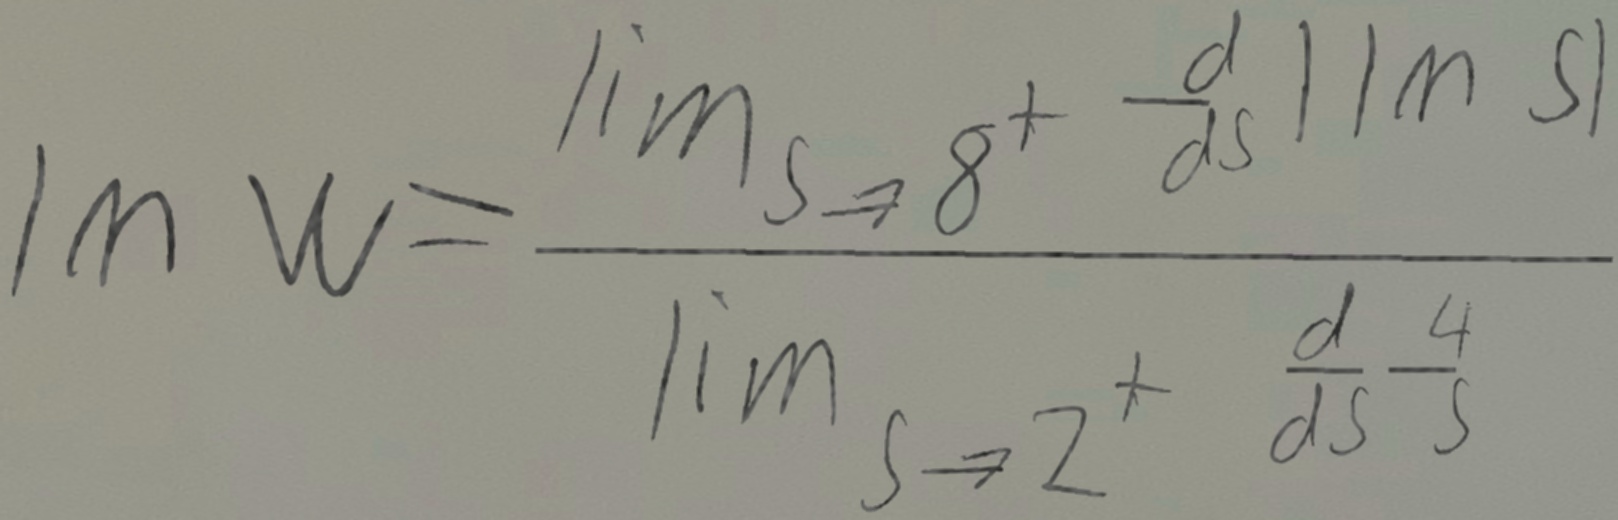 \ln W = \frac{\lim_{s \to 8^+} \frac{d}{ds} |\ln s|}{\lim_{s \to 2^+} \frac{d}{ds} \frac{4}{s}}